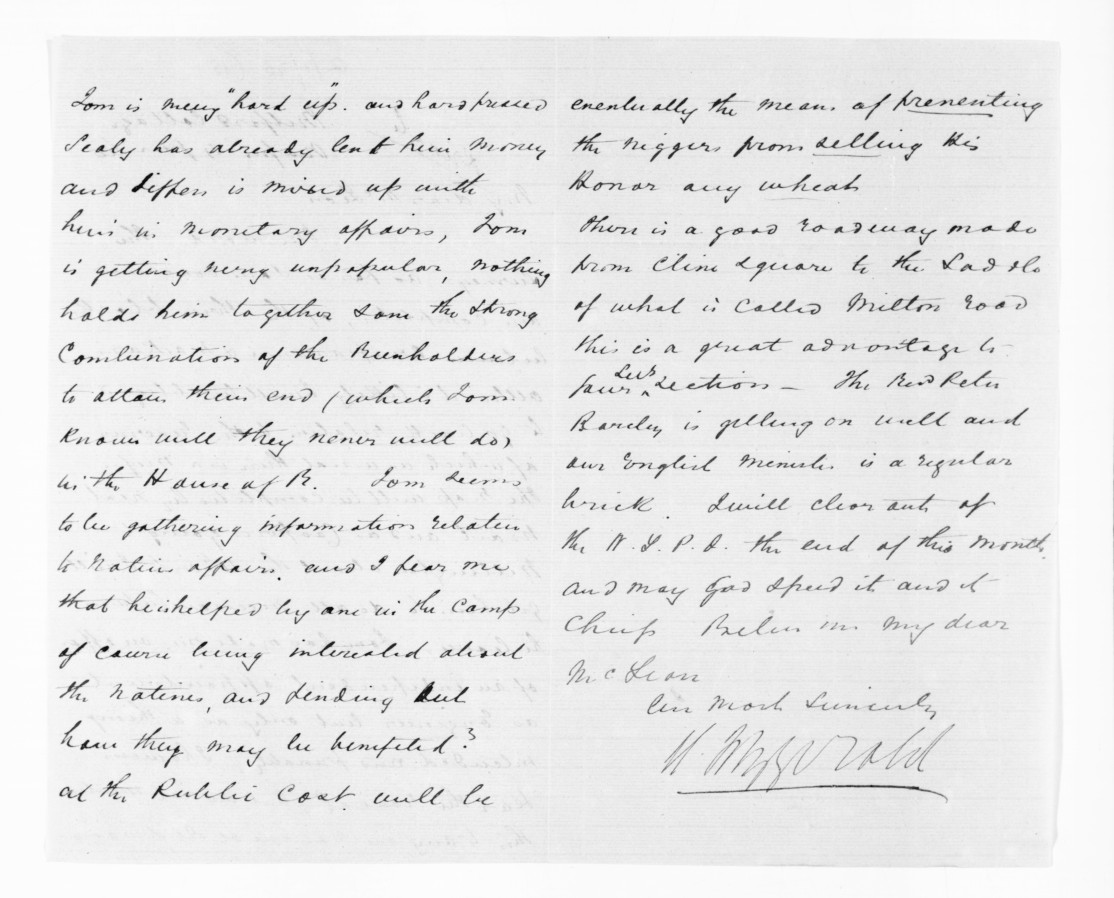 Tom is very "hard up". and hard pressed
Sealy has already lent him money
and Tiffen is mixed up with
him in monetary affairs, Tom
is getting very unpopular, nothing
holds him together save the strong
Combination of the Runholders
to attain their end (which Tom
knows well they never will do)
in the House of R. Tom seems
to be gathering information relative
to Native affairs. and I fear me
that he is helped by one in the Camp
of course being interested about
the Natives, and finding out
how they may be benefited?
at the Public Cost. will be
eventually the means of preventing
the niggers from selling His
Honor any wheat
There is a good roadway made
from Clive Square to the
of what is called Milton road
this is a great advantage to
your Sub Section — The Revd Peter
Barclay is getting on well and
our English Minister is a regular
brick. I will clear out of
the N. L. P. D. the end of this month.
and may God speed it and it
Chief Believe me my dear
McLean
Ever Most Sincerely
H. Fitzgerald